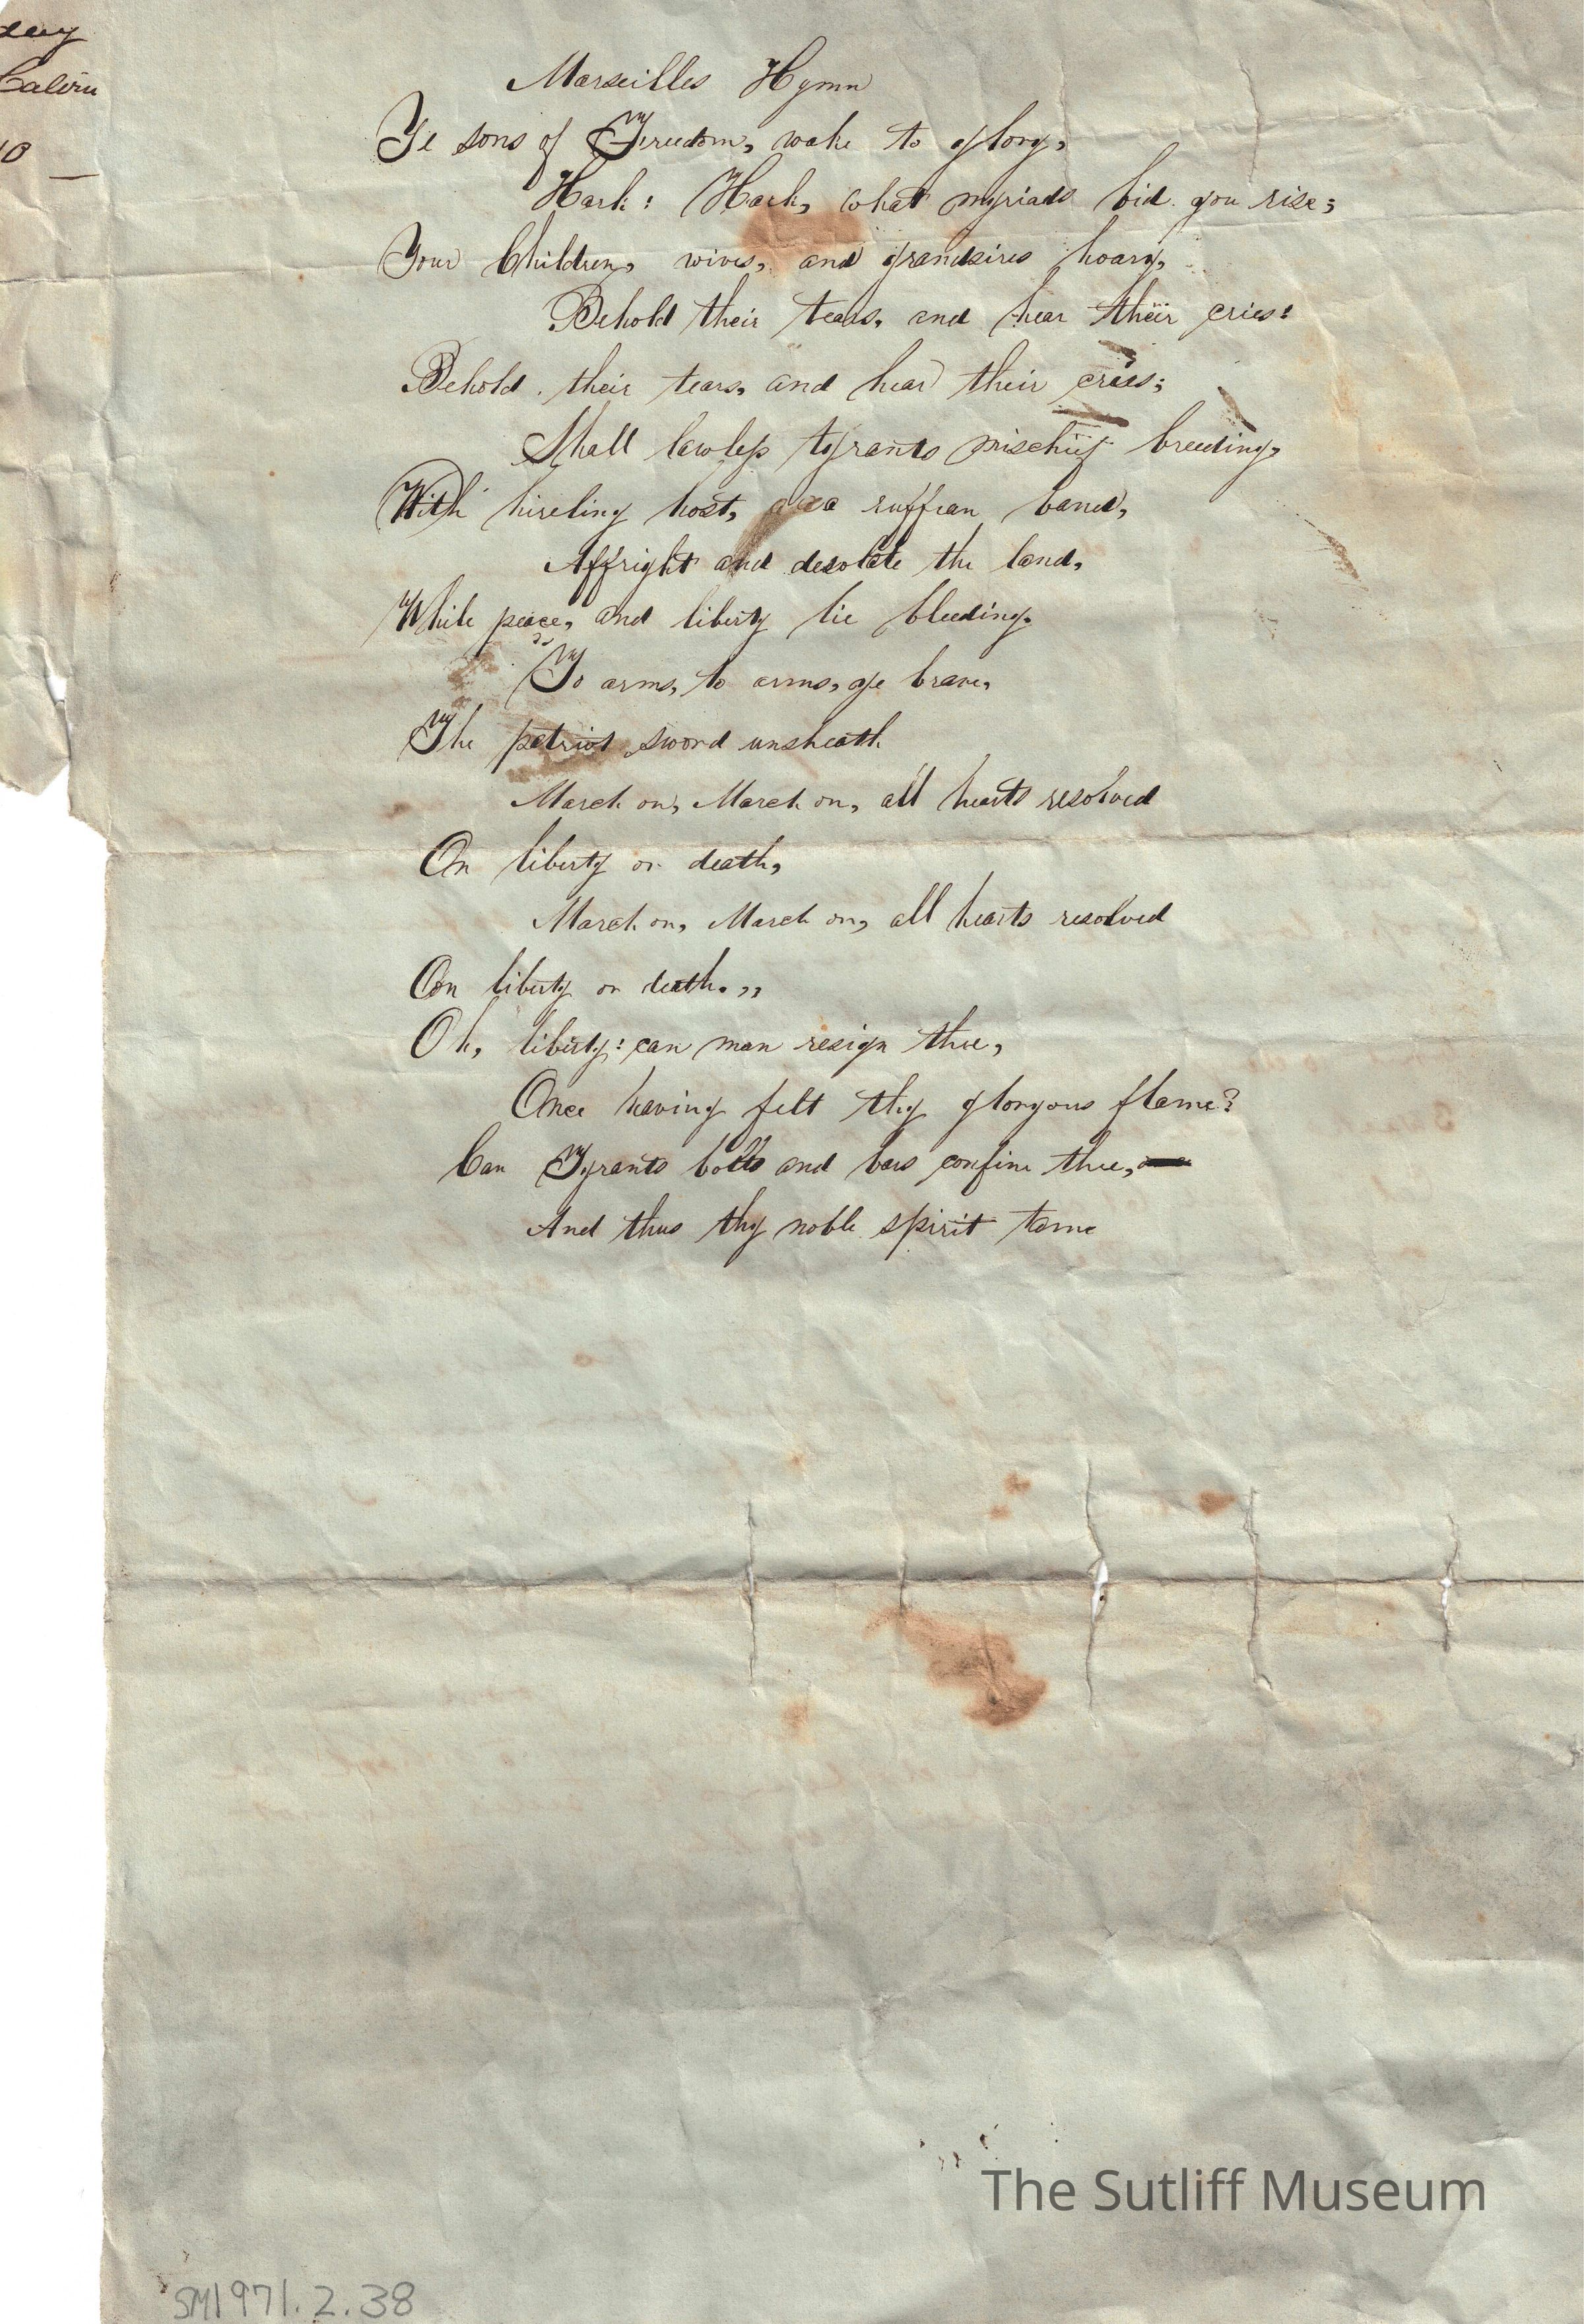 Marseilles Hymn
Ye sons of Freedom, wake to glory,
Hark: Hark, what myriads bid you rise;
Your Children, wives, and grandsires hoary,
Behold their tears, and hear their cries:
Behold their tears, and hear their cries;
Shall lawless tyrants mischief breeding,
With hireling host, a ruffian band,
Affright and desolate the land,
While peace, and liberty lie bleeding.
To arms, to arms, ye brave,
The patriot sword unsheath
March on, March on, all hearts resolved
On liberty or death,
March on, March on, all hearts resolved
On liberty or death. ,,
Oh, liberty: can man resign thee,
Once having felt thy gloryous flame?
Can Tyrants bolts and bars confine thee,
And thus thy noble spirit tame
Calvin
The Sutliff Museum
SM1971.2.38